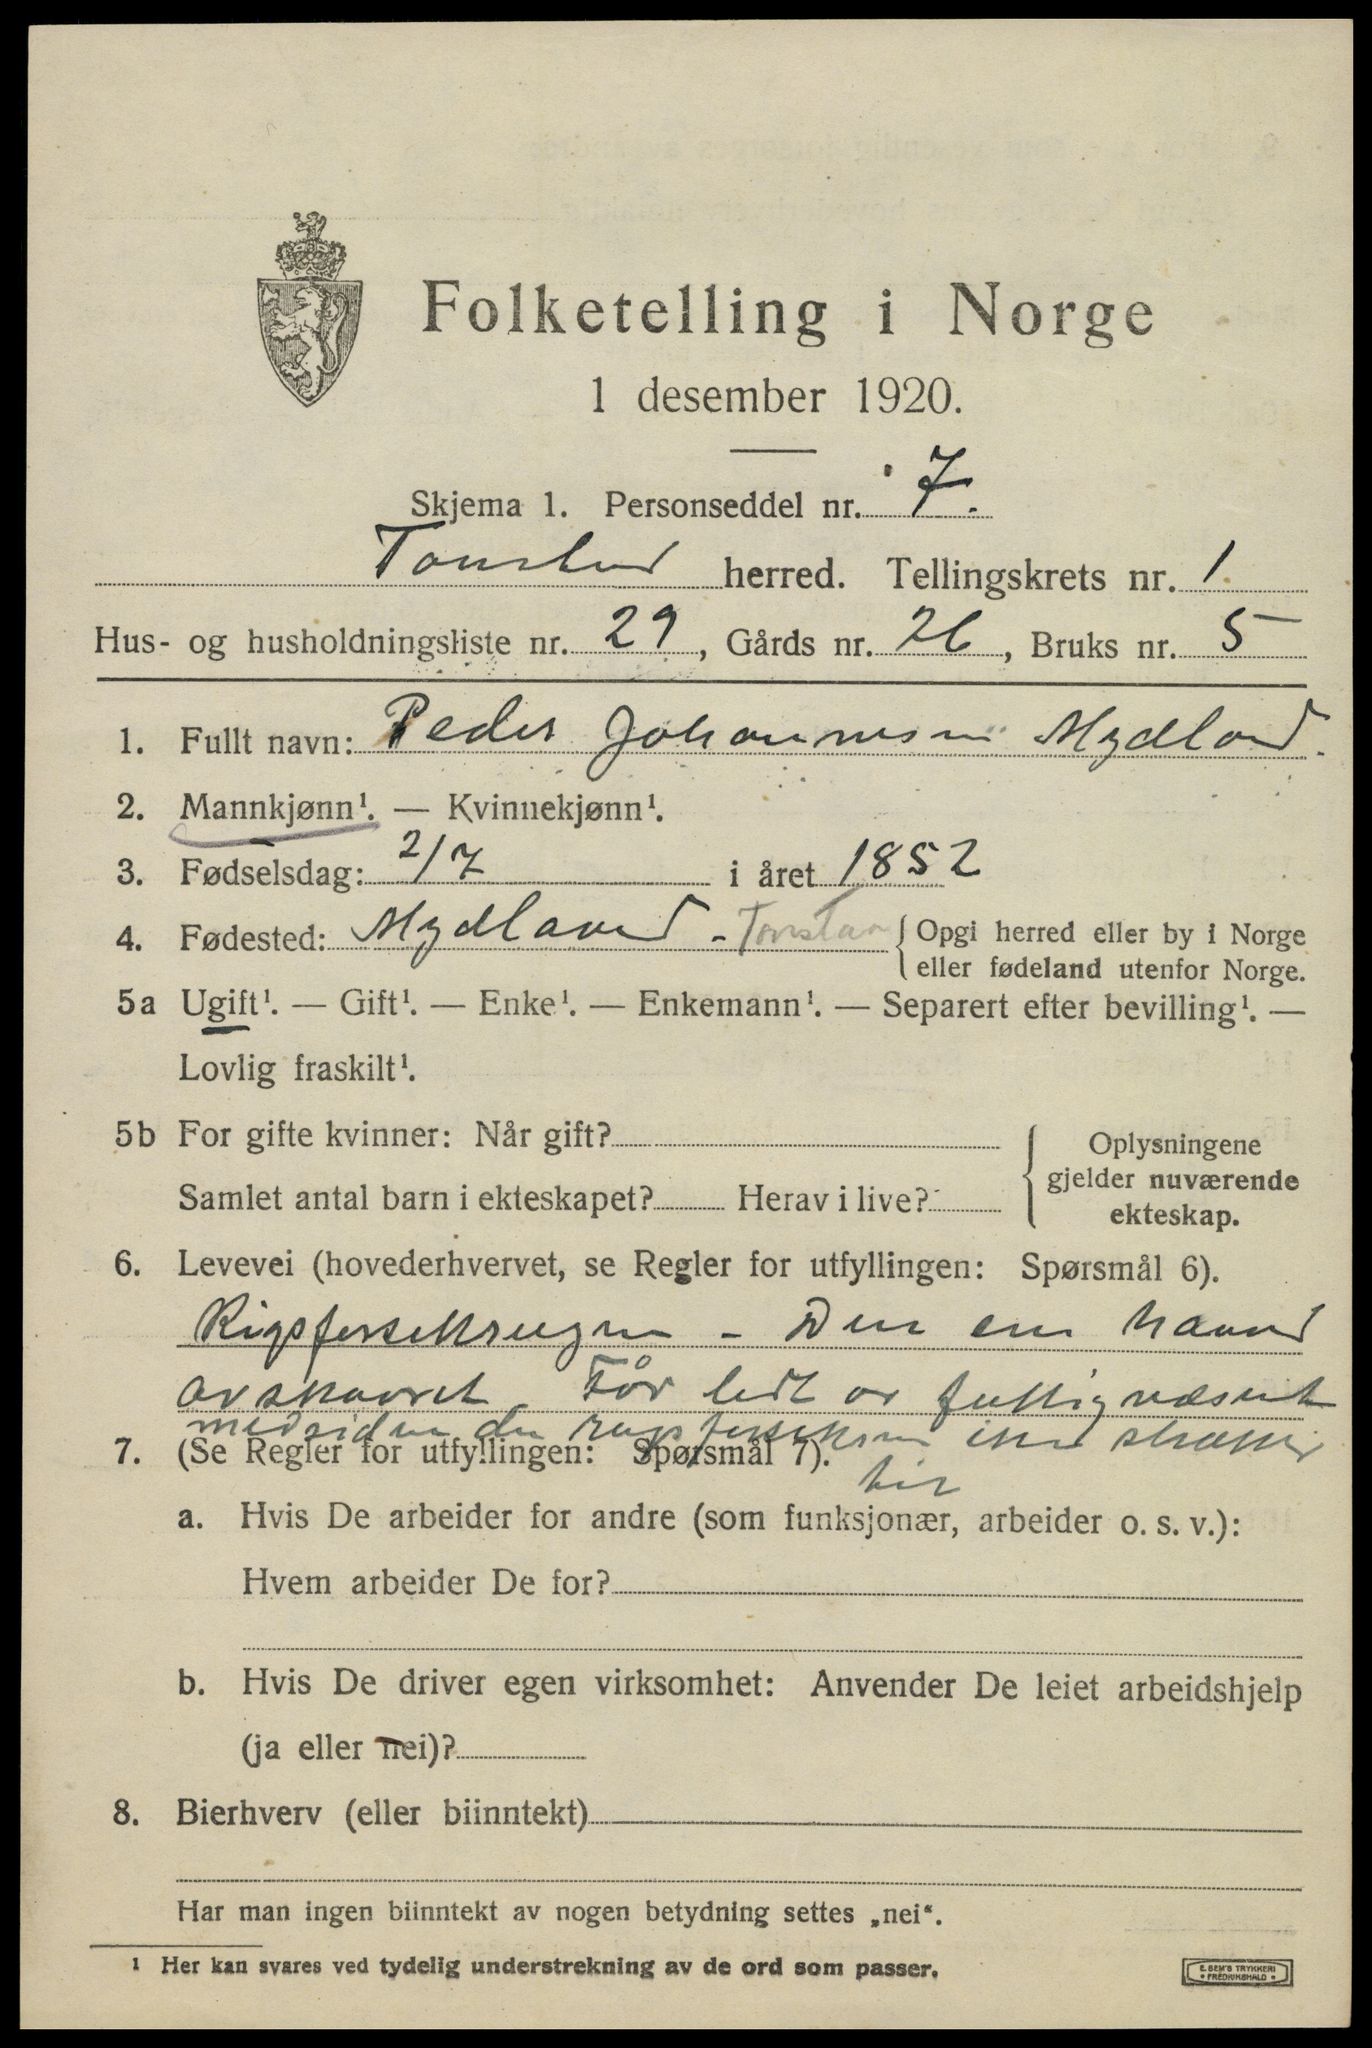 Folketelling i Norge
1 desember 1920.
Skjema 1. Personseddel nr. 7.
Tonstad herred. Tellingskrets nr. 1
Hus- og husholdningsliste nr. 29, Gårds nr. 26, Bruks nr. 5
1. Fullt navn: Peder Johannesen Mydland.
2. Mannkjønn¹. — Kvinnekjønn¹.
3. Fødselsdag: 2/7 i året 1852
4. Fødested: Mydland - Tonstad { Opgi herred eller by i Norge
eller fødeland utenfor Norge.
5a Ugift¹. — Gift¹. — Enke¹. — Enkemann¹. — Separert efter bevilling¹. —
Lovlig fraskilt¹.
5b For gifte kvinner: Når gift?
Samlet antal barn i ekteskapet? Herav i live?
Oplysningene
gjelder nuværende
ekteskap.
6. Levevei (hovederhvervet, se Regler for utfyllingen: Spørsmål 6).
- Den ene haand
avskaaret Får av fattigvæsenet
7. (Se Regler for utfyllingen: Spørsmål 7).
a. Hvis De arbeider for andre (som funksjonær, arbeider o. s. v.):
Hvem arbeider De for?
b. Hvis De driver egen virksomhet: Anvender De leiet arbeidshjelp
(ja eller nei)?
8. Bierhverv (eller biinntekt)
Har man ingen biinntekt av nogen betydning settes „nei“.
¹ Her kan svares ved tydelig understrekning av de ord som passer.
E. SEM'S TRYKKERI
FREDRIKSHALD